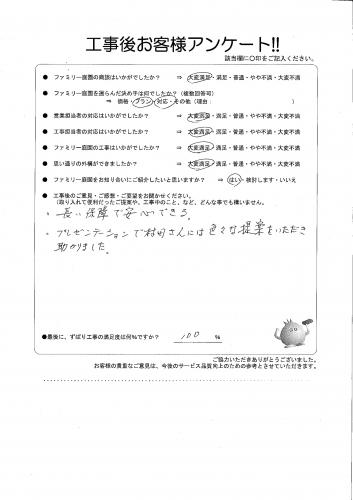 工事後お客様アンケート!!
該当欄に〇印をご記入ください。
● ファミリー庭園の商談はいかがでしたか? ⇒ 大変満足・満足・普通・やや不満・大変不満
● ファミリー庭園を選らんだ決め手は何でしたか?(複数回答可)
⇒ 価格・プラン・対応・その他(理由: )
● 営業担当者の対応はいかがでしたか? ⇒ 大変満足・満足・普通・やや不満・大変不満
● 工事担当者の対応はいかがでしたか? ⇒ 大変満足・満足・普通・やや不満・大変不満
● ファミリー庭園の工事はいかがでしたか? ⇒ 大変満足・満足・普通・やや不満・大変不満
● 思い通りの外構ができましたか? ⇒ 大変満足・満足・普通・やや不満・大変不満
● ファミリー庭園をお知り合いにご紹介したいと思いますか? ⇒ はい・検討します・いいえ
● 工事後のご意見・ご感想・ご要望をお聞かせください。
(取り入れて便利だったご提案や、工事中のこと、など、どんな事でも構いません。)
・長い保障で安心できる。
・プレゼンテーションで村田さんには色々な提案をいただき
助かりました。
●最後に、ずばり工事の満足度は何%ですか? 100 %
ご協力いただきありがとうございました。
お客様の貴重なご意見は、今後のサービス品質向上のための参考とさせていただきます。